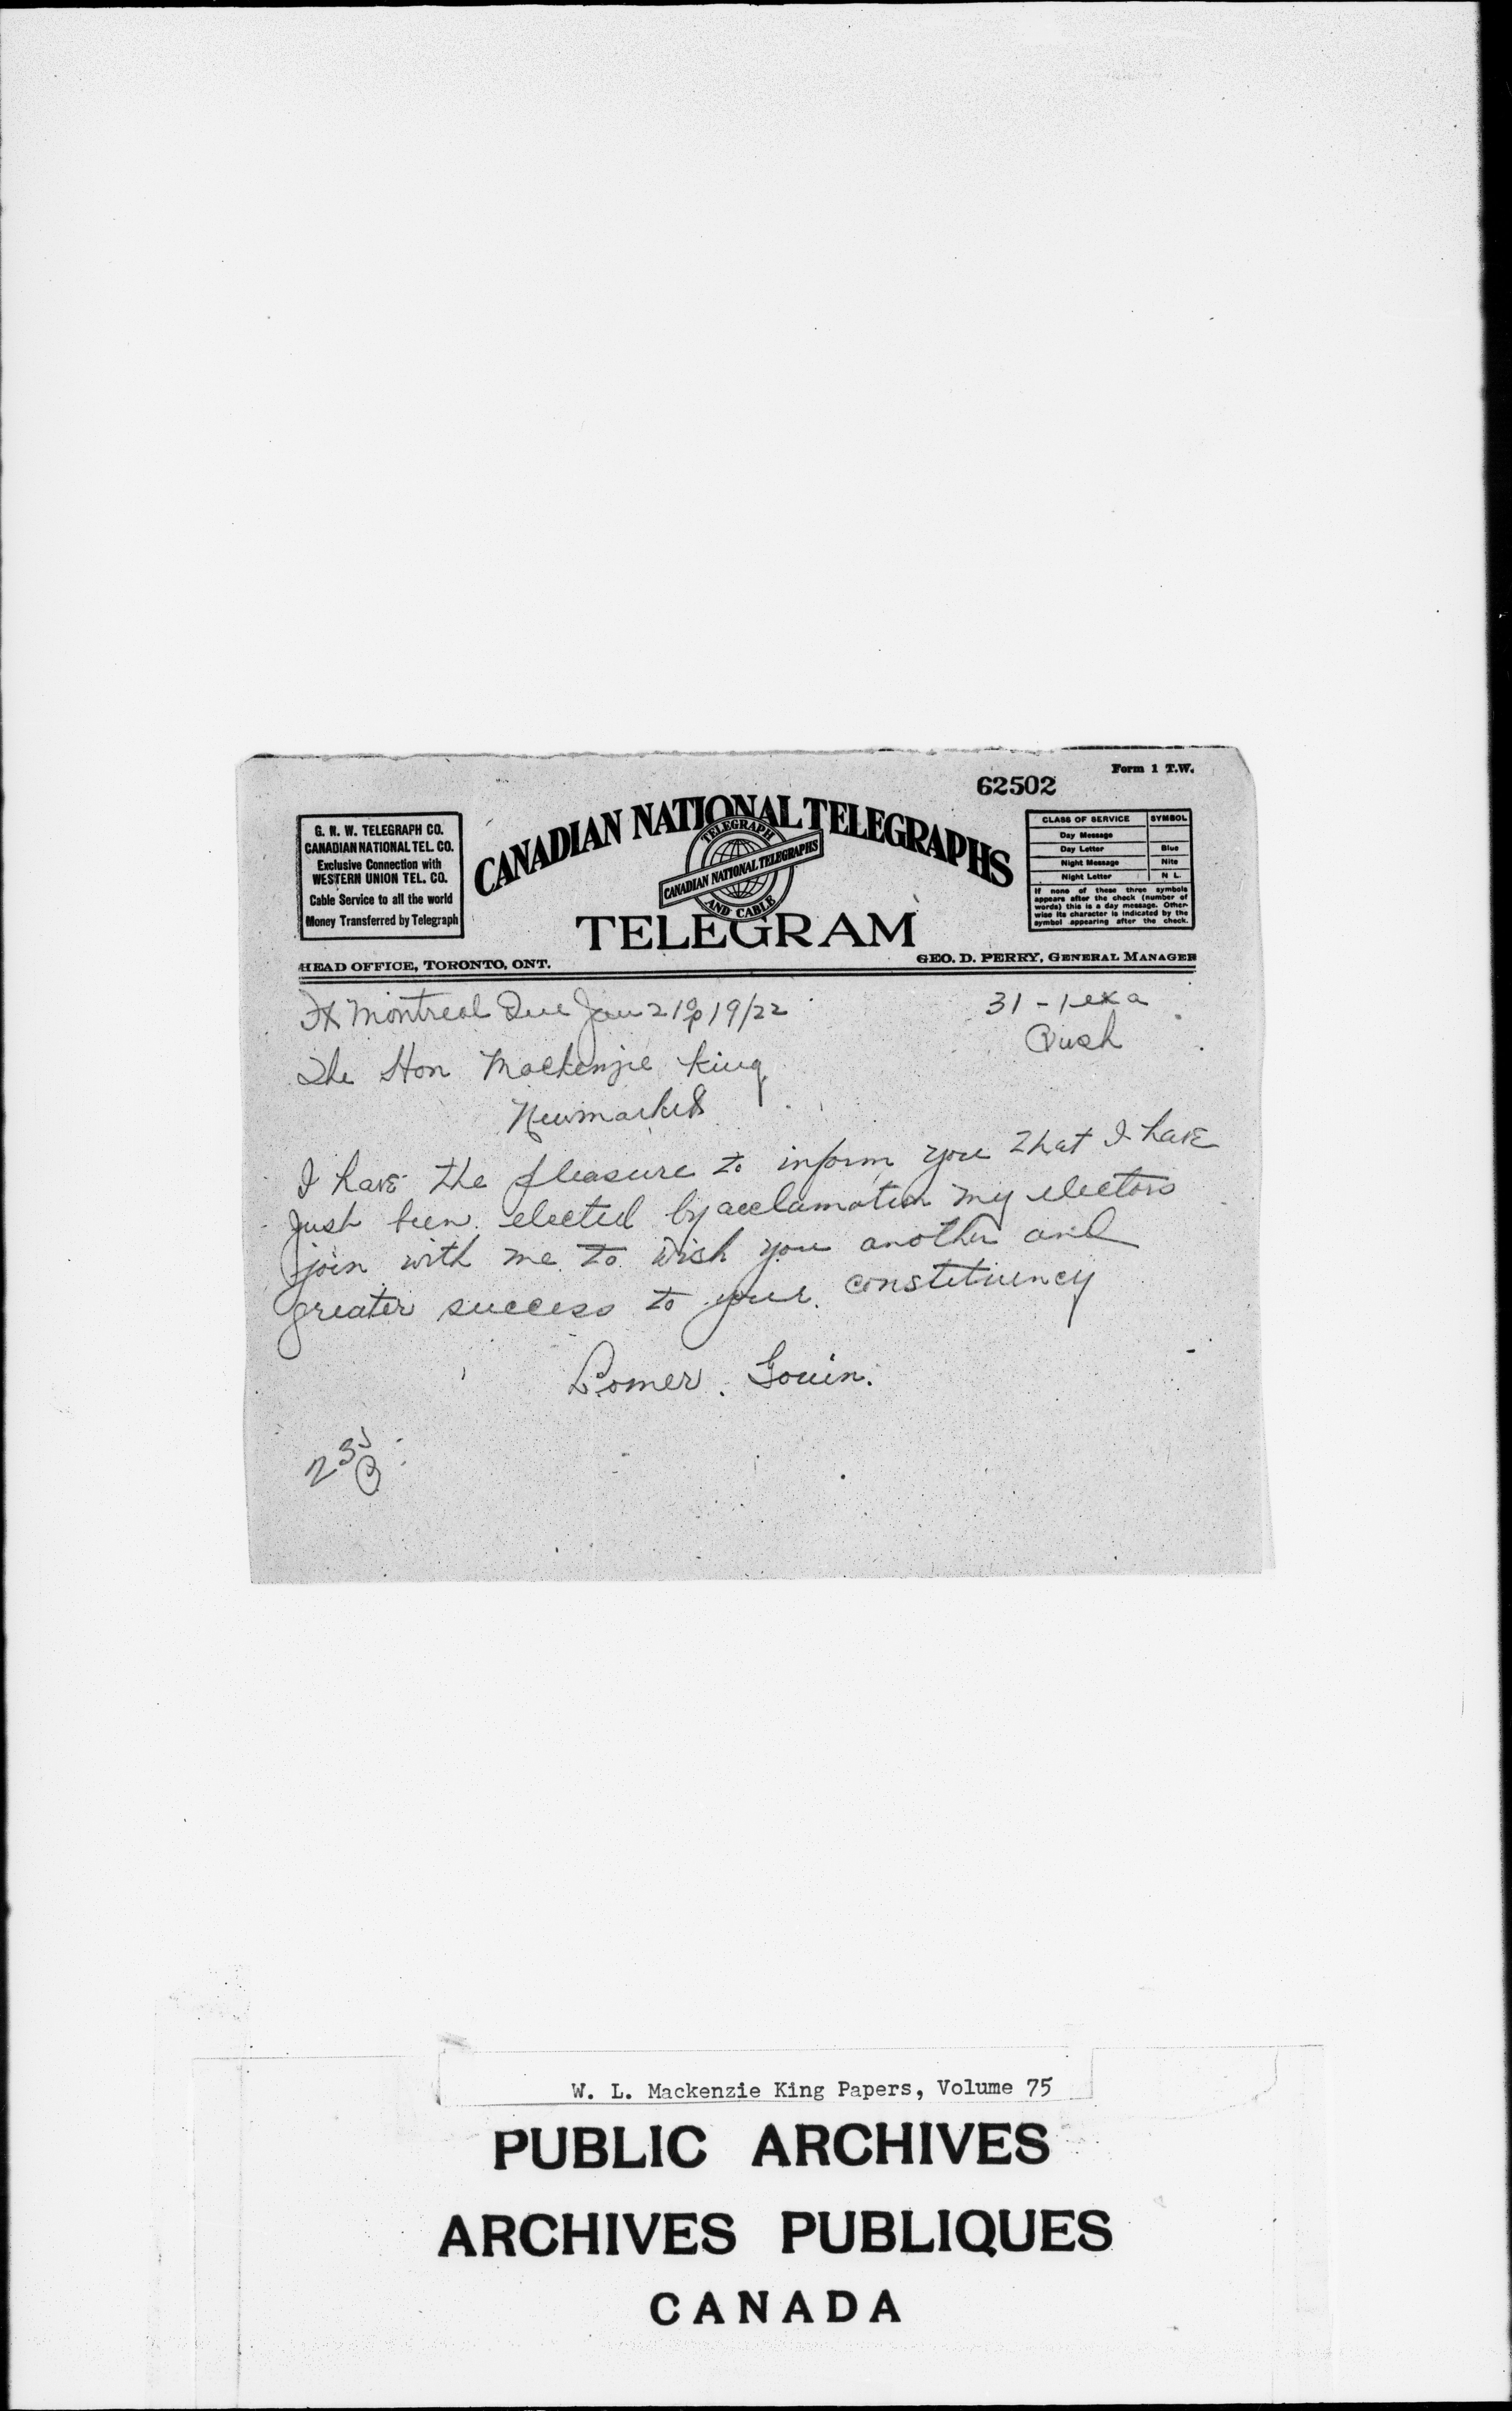 Form 1 T.W.
62502
G. N. W. TELEGRAPH CO.
CANADIAN NATIONAL TEL. CO.
Exclusive Connection with
WESTERN UNION TEL. CO.
Cable Service to all the world
Money Transferred by Telegraph
CANADIAN NATIONAL TELEGRAPHS
TELEGRAPH
CANADIAN NATIONAL TELEGRAPHS
AND CABLE
TELEGRAM
CLASS OF SERVICE SYMBOL
Day Message
Day Letter Blue
Night Message Nite
Night Letter N L
If none of these three symbols
appears after the check (number of
words) this is a day message. Other-
wise its character is indicated by the
symbol appearing after the check.
HEAD OFFICE, TORONTO, ONT.
GEO. D. PERRY, GENERAL MANAGER
Montreal Que Jan 19/22
31 - 1 ex a
Rush
The Hon Mackenzie King
Newmarket
I have the pleasure to inform you that I have
just been elected by acclamation my electors
join with me to wish you another and
greater success to your constituency
Lomer Gouin.
W. L. Mackenzie King Papers, Volume 75
PUBLIC ARCHIVES
ARCHIVES PUBLIQUES
CANADA